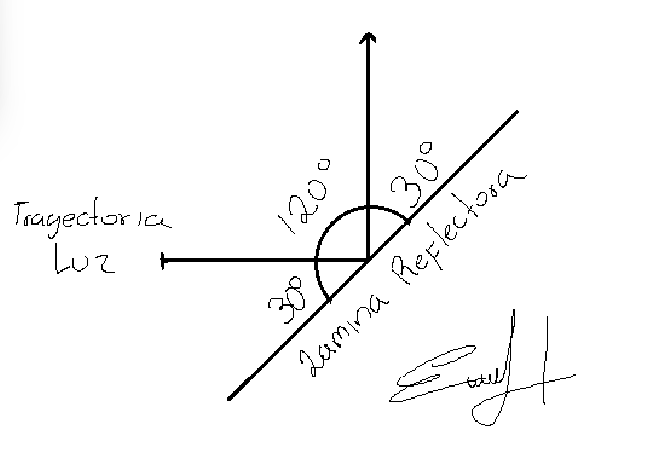 Tragectoria
Luz
120°
30°
30°
Lamina Reflectora